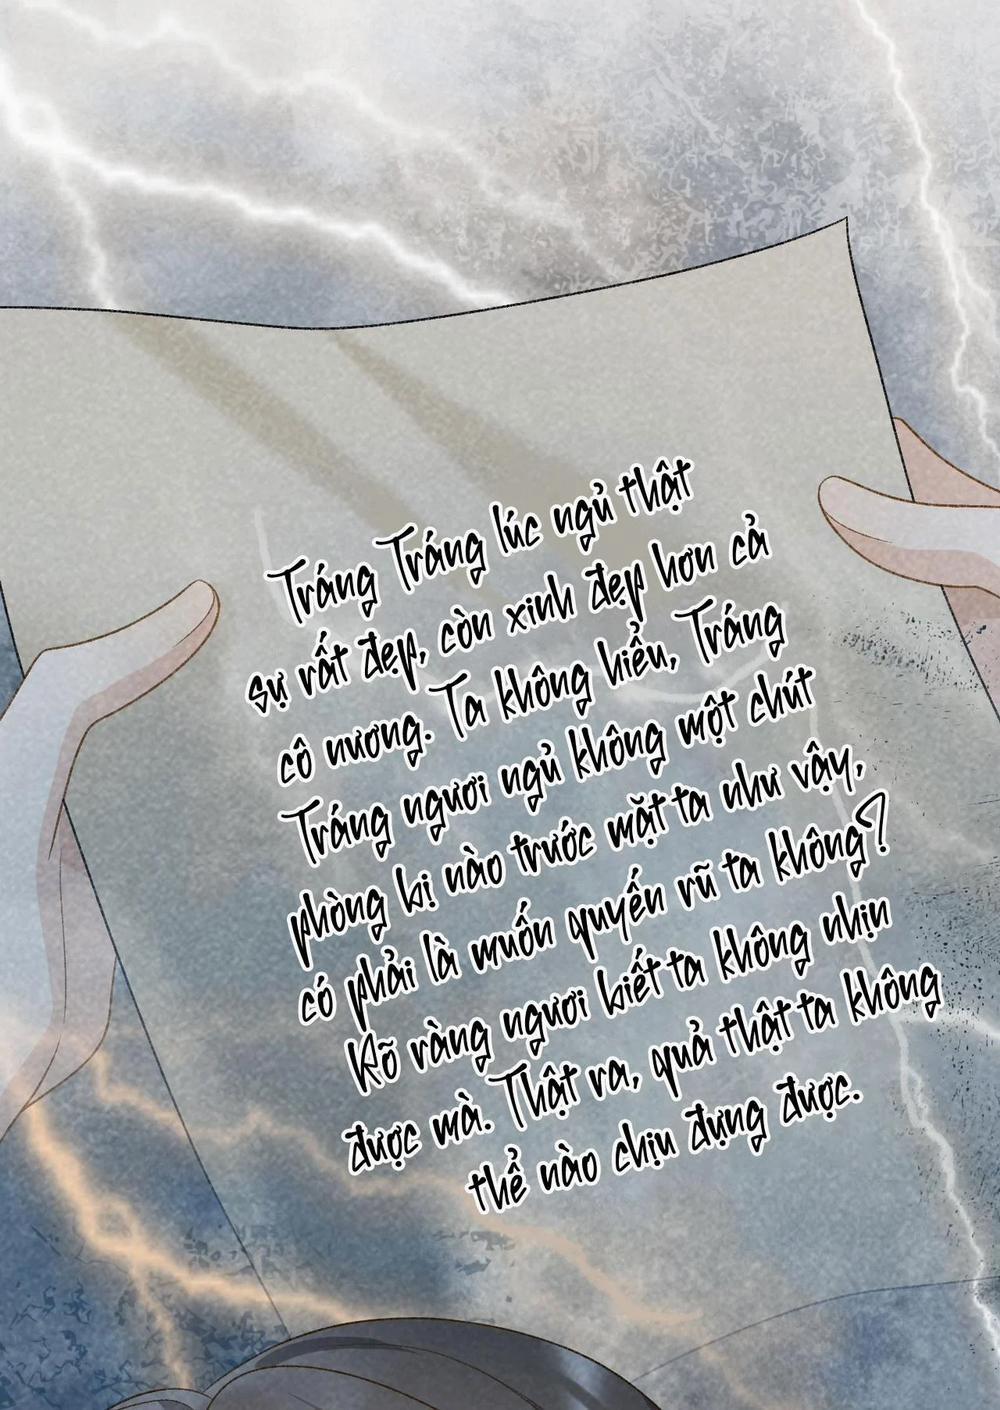 Tráng Tráng lúc ngủ thật
sự rất đẹp, còn xinh đẹp hơn cả
cô nương. Ta không hiểu, Tráng
Tráng ngươi ngủ không một chút
phòng bị nào trước mặt ta như vậy,
có phải là muốn quyến rũ ta không?
Rõ ràng ngươi biết ta không nhịn
được mà. Thật ra, quả thật ta không
thể nào chịu đựng được.